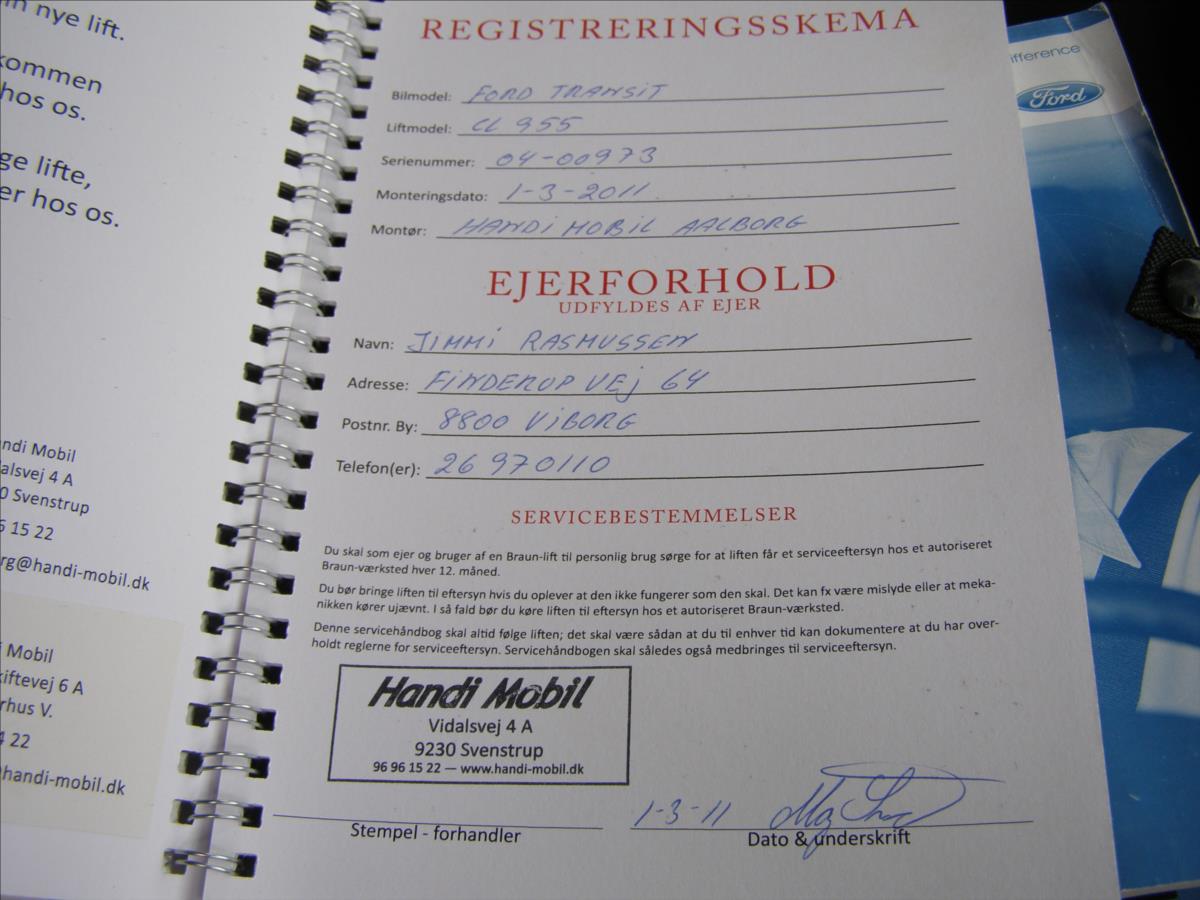 nye lift.
kommen
hos os.
ge lifte,
er hos os.
ndi Mobil
alsvej 4 A
0 Svenstrup
6 15 22
rg@handi-mobil.dk
i Mobil
kiftevej 6 A
rhus V.
4 22
@handi-mobil.dk
REGISTRERINGSSKEMA
Bilmodel: FORD TRANSIT
Liftmodel: CL 955
Serienummer: 04-00973
Monteringsdato: 1-3-2011
Montør: HANDI MOBIL AALBORG
EJERFORHOLD
UDFYLDES AF EJER
Navn: JIMMI RASMUSSEN
Adresse: FINDERUPVEJ 64
Postnr. By: 8800 VIBORG
Telefon(er): 26 970110
SERVICEBESTEMMELSER
Du skal som ejer og bruger af en Braun-lift til personlig brug sørge for at liften får et serviceeftersyn hos et autoriseret
Braun-værksted hver 12. måned.
Du bør bringe liften til eftersyn hvis du oplever at den ikke fungerer som den skal. Det kan fx være mislyde eller at meka-
nikken kører ujævnt. I så fald bør du køre liften til eftersyn hos et autoriseret Braun-værksted.
Denne servicehåndbog skal altid følge liften; det skal være sådan at du til enhver tid kan dokumentere at du har over-
holdt reglerne for serviceeftersyn. Servicehåndbogen skal således også medbringes til serviceeftersyn.
Handi Mobil
Vidalsvej 4 A
9230 Svenstrup
96 96 15 22 — www.handi-mobil.dk
1-3-11
Stempel - forhandler
Dato & underskrift
ifference
Ford